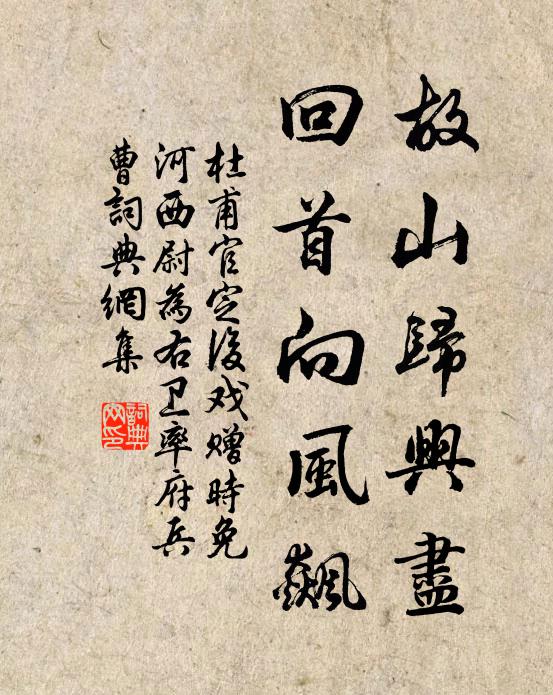 故山歸興盡
回首向風飆
杜甫官定後戏赠時免
河西尉為右卫率府兵
曹詞典網集
詞典网印